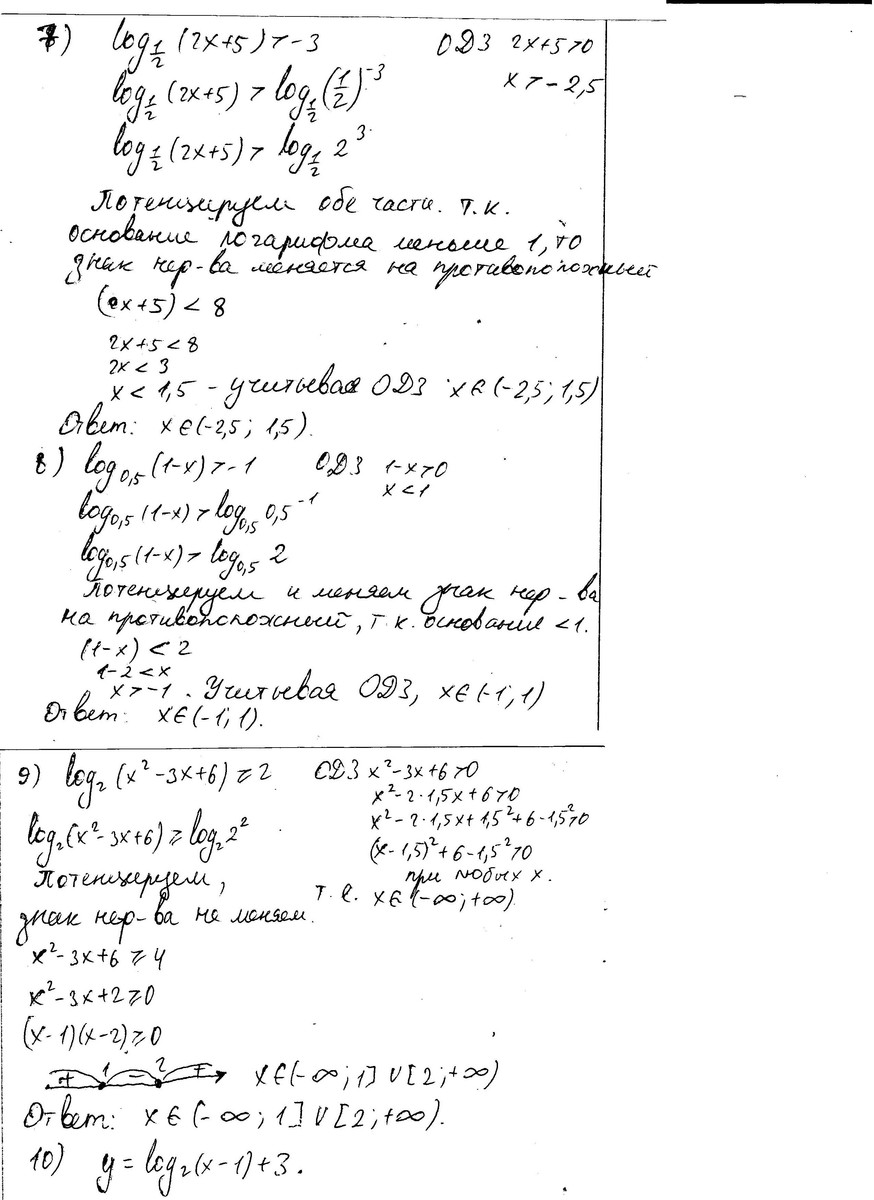 7) log_{1/2} (2x+5) > -3 ОДЗ 2x+5>0
x > -2,5
log_{1/2} (2x+5) > log_{1/2} (1/2)^{-3}
log_{1/2} (2x+5) > log_{1/2} 2^3
Потенцируем обе части. т.к.
основание логарифма меньше 1, то
знак нер-ва меняется на противоположный
(2x+5) < 8
2x+5 < 8
2x < 3
x < 1,5 - учитывая ОДЗ x∈(-2,5; 1,5)
Ответ: x∈(-2,5; 1,5).
8) log_{0,5} (1-x) > -1 ОДЗ 1-x>0
x<1
log_{0,5} (1-x) > log_{0,5} 0,5^{-1}
log_{0,5} (1-x) > log_{0,5} 2
Потенцируем и меняем знак нер-ва
на противоположный, т.к. основание <1.
(1-x) < 2
1-2 < x
x > -1. Учитывая ОДЗ, x∈(-1; 1)
Ответ: x∈(-1; 1).
9) log_2 (x²-3x+6) ≥ 2 ОДЗ x²-3x+6>0
x²-2·1,5x+6>0
log_2 (x²-3x+6) ≥ log_2 2² x²-2·1,5x+1,5²+6-1,5²>0
(x-1,5)²+6-1,5²>0
Потенцируем, при любых x.
т.е. x∈(-∞; +∞)
знак нер-ва не меняем.
x²-3x+6 ≥ 4
x²-3x+2 ≥ 0
(x-1)(x-2) ≥ 0
+ 1 - 2 + x∈(-∞; 1] ∪ [2; +∞)
Ответ: x∈(-∞; 1] ∪ [2; +∞).
10) y = log_2 (x-1)+3.